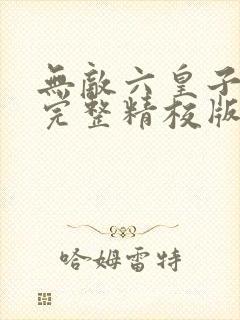 無敵六皇子
完整精校版
哈姆雷特